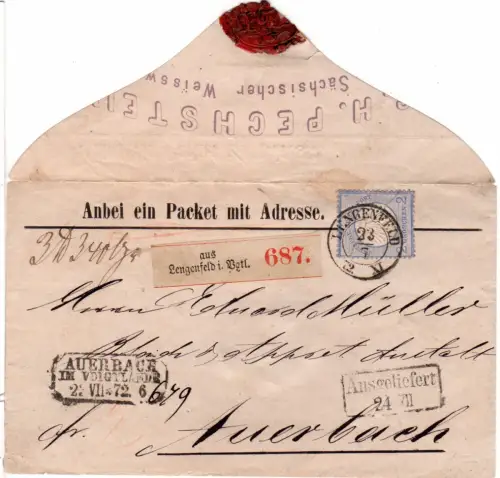 H. PECHSTEI
Sächsischer Weissw
Anbei ein Packet mit Adresse.
aus
Lengenfeld i. Vgtl.
687.
LENGENFELD
23
7
2
Herrn Eduard Müller
Anstalt
AUERBACH
IM VOIGTLANDE
VII 72
679
Ausgeliefert
24 VII
fr. Auerbach